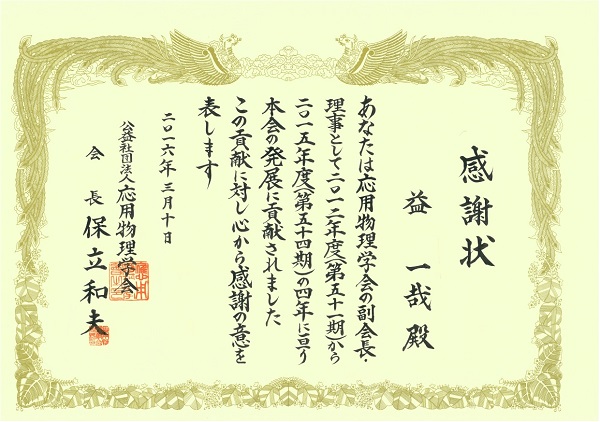 感謝状
益 一哉 殿
あなたは応用物理学会の副会長・
理事として二〇一二年度(第五十一期)から
二〇一五年度(第五十四期)の四年に亘り
本会の発展に貢献されました
この貢献に対し心から感謝の意を
表します
二〇一六年三月十日
公益社団法人 応用物理学会
会長 保立和夫